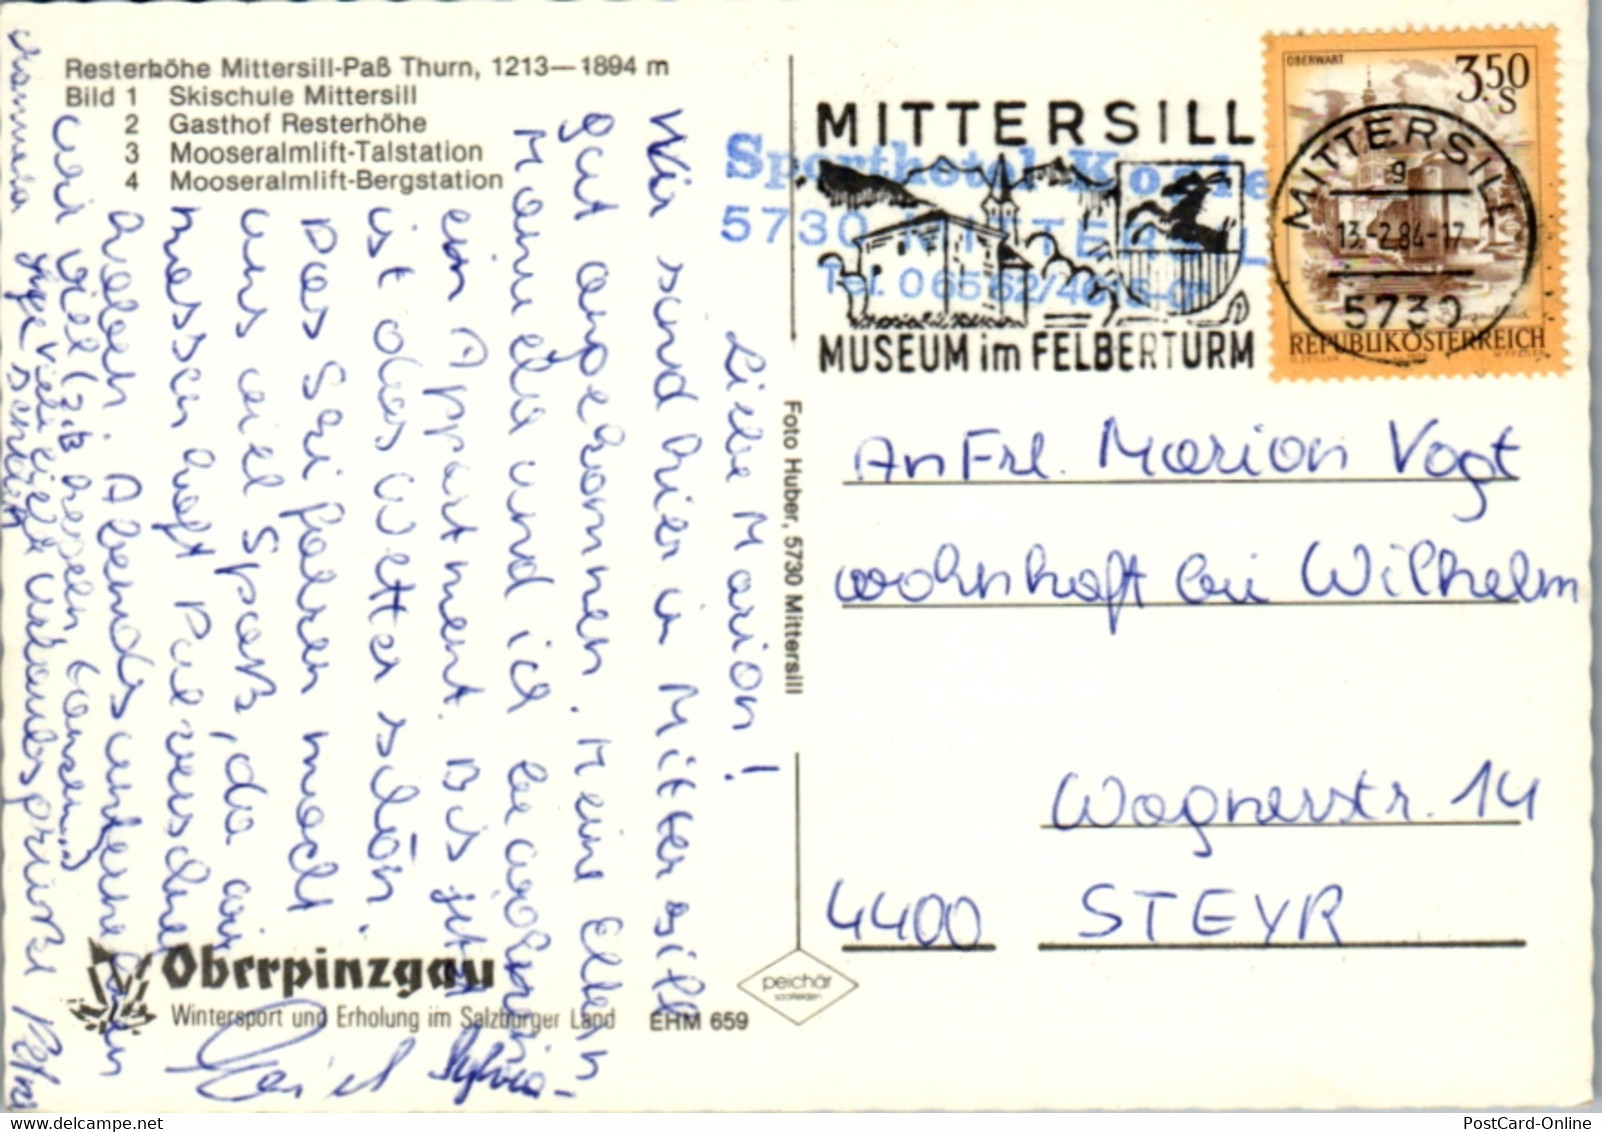 Resterhöhe Mittersill-Paß Thurn, 1213—1894 m
Bild 1 Skischule Mittersill
2 Gasthof Resterhöhe
3 Mooseralmlift-Talstation
4 Mooseralmlift-Bergstation
Liebe Marion!
Wir sind hier in Mittersill
gut angekommen. Meine Eltern
Manuela und ich bewohnen
ein Appartment. Bis jetzt
ist das Wetter schön.
Das Skifahren macht
uns viel Spaß, da wir
massenhaft Pulverschnee
haben. Abends unternehmen
wir viel (z.B. kegeln, tanzen...)
Viele
Urlaubsgrüße
Petra
Manuela
Sylvia
Oberpinzgau
Wintersport und Erholung im Salzburger Land
EHM 659
Foto Huber, 5730 Mittersill
peichär
saalfelden
MITTERSILL
MUSEUM im FELBERTURM
Sporthotel Kogler
5730 MITTERSILL
Tel. 06562/4615-0
OBERWART
3.50
S
REPUBLIK ÖSTERREICH
MITTERSILL
g
13.-2.84-17
5730
An Frl. Marion Vogt
wohnhaft bei Wilhelm
Wagnerstr. 14
4400 STEYR
PostCard-Online